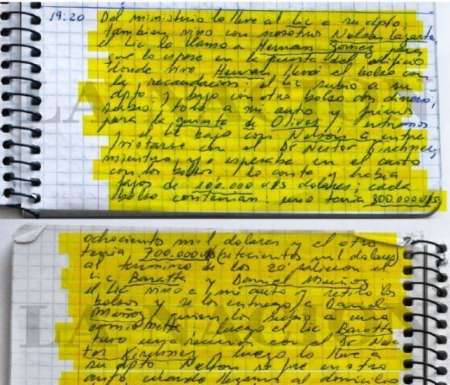 19:20 Del ministerio lo lleve al Lic a su dpto,
tambien vino con nosotros Nelson Lazarte,
el Lic lo llamo a Hernan Gomez para
que lo espere en la puerta del edificio
donde vive Hernan, llevo el bolso con
recaudacion, el Lic subio a su
dpto y bajo con otro bolso con dinero,
subio todo a mi auto y fuimos
para la quinta de Olivos,
el Lic bajo con Nelson a entre
vistarse con el Dr Nestor Kirchner,
mientras yo esperaba en el auto
con los bolsos lo conte y habia
fajos de 100.000 u$s dolares, cada
bolso contenian uno tenia 800.000 u$s
ochociento mil dolares y el otro
tenia 700.000 u$s (setecientos mil dolares)
al termino de los 20 minutos el
Lic Baratta y Daniel Muñoz
el Lic vino a mi auto y retiro los
bolsos y se los entrego a Daniel
Muñoz, quien los subio a una
camioneta, luego el Lic Baratta
tuvo una reunion con el Dr Nes
tor Kirchner y luego lo lleve a
su dpto, Nelson se fue en otro
auto, cuando llegamos al domicilio
LA NACION
LA NACION